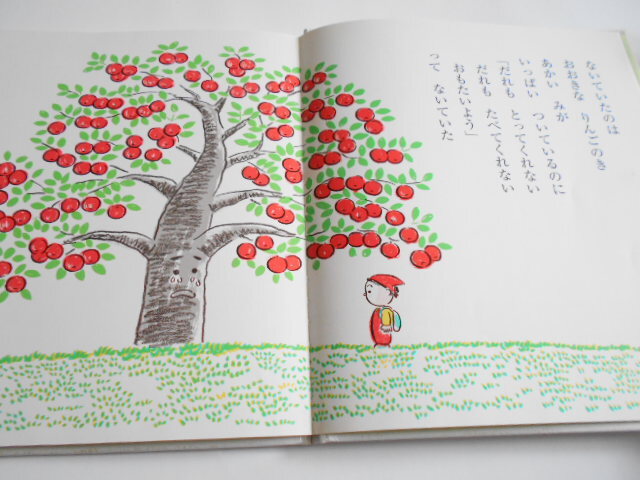 ないていたのは
おおきな りんごのき
あかい みが
いっぱい ついているのに
「だれも とってくれない
だれも たべてくれない
おもたいよう」
って ないていた